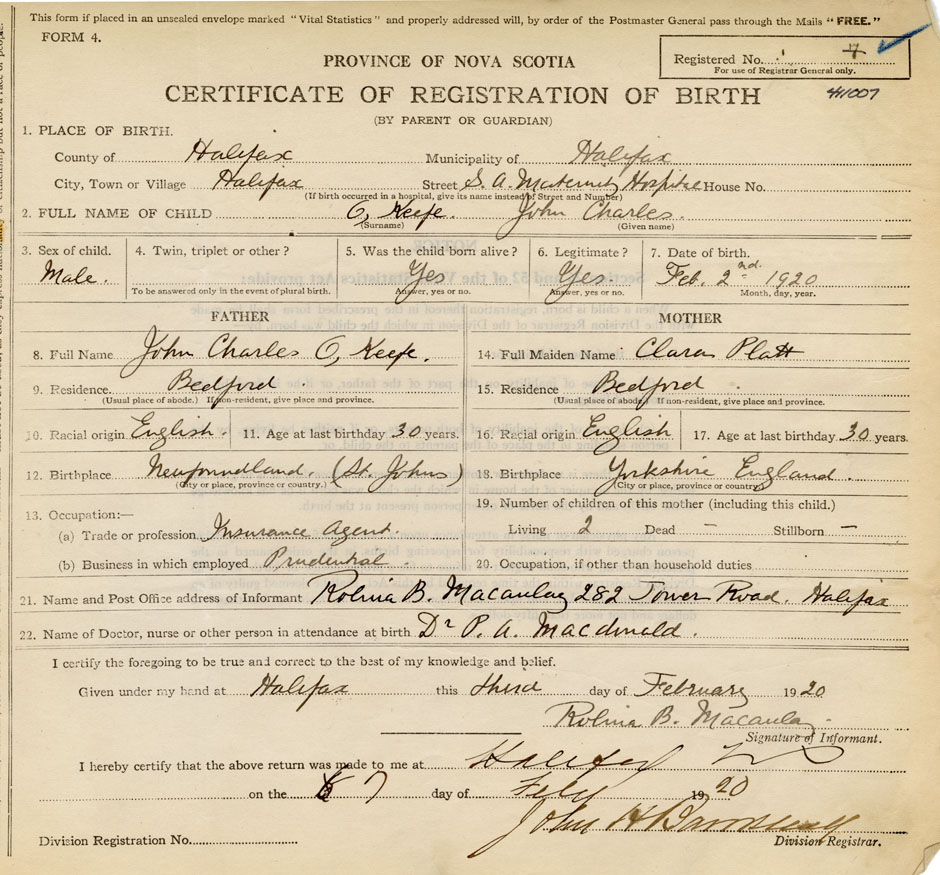 This form if placed in an unsealed envelope marked "Vital Statistics" and properly addressed will, by order of the Postmaster General pass through the Mails "FREE."
FORM 4.
Registered No. 7
For use of Registrar General only.
PROVINCE OF NOVA SCOTIA
CERTIFICATE OF REGISTRATION OF BIRTH
411007
(BY PARENT OR GUARDIAN)
1. PLACE OF BIRTH.
County of Halifax Municipality of Halifax
City, Town or Village Halifax Street S. A. Maternity Hospital House No.
(If birth occurred in a hospital, give its name instead of Street and Number)
2. FULL NAME OF CHILD O, Keefe. John Charles.
(Surname) (Given name)
3. Sex of child. 4. Twin, triplet or other? 5. Was the child born alive? 6. Legitimate? 7. Date of birth.
Male. Yes Yes Feb. 2nd. 1920
To be answered only in the event of plural birth. Answer, yes or no. Answer, yes or no. Month, day, year.
FATHER MOTHER
8. Full Name John Charles O, Keefe. 14. Full Maiden Name Clara Platt
9. Residence. Bedford. 15. Residence Bedford.
(Usual place of abode.) If non-resident, give place and province. (Usual place of abode.) If non-resident, give place and province.
10. Racial origin English. 11. Age at last birthday 30 years. 16. Racial origin English 17. Age at last birthday 30 years.
12. Birthplace Newfoundland. (St. Johns) 18. Birthplace Yorkshire England.
(City or place, province or country.) (City or place, province or country)
13. Occupation:— 19. Number of children of this mother (including this child.)
(a) Trade or profession Insurance Agent. Living 2 Dead – Stillborn –
(b) Business in which employed Prudential. 20. Occupation, if other than household duties
21. Name and Post Office address of Informant Rolina B. Macaulay 282 Tower Road. Halifax
22. Name of Doctor, nurse or other person in attendance at birth Dr P. A. Macdonald.
I certify the foregoing to be true and correct to the best of my knowledge and belief.
Given under my hand at Halifax this third day of February 1920
Rolina B. Macaulay.
Signature of Informant.
I hereby certify that the above return was made to me at Halifax
on the 7 day of Feby 1920
John H
Division Registration No. Division Registrar.